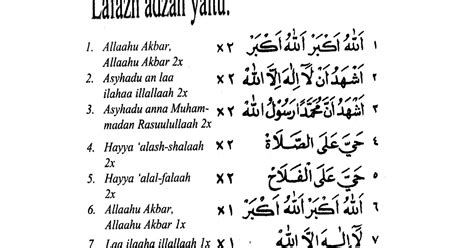 Lafazh adzan yaitu:
1. Allaahu Akbar, x٢ اَللهُ اَكْبَرُ اَللهُ اَكْبَرُ ١
Allaahu Akbar 2x
2. Asyhadu an laa x٢ اَشْهَدُ اَنْ لَآ اِلٰهَ اِلَّا اللهُ ٢
ilaahaa illallaah 2x
3. Asyhadu anna Muham- x٢ اَشْهَدُ اَنَّ مُحَمَّدًا رَسُوْلُ اللهِ ٣
madan Rasuulullaah 2x
4. Hayya ‘alash-shalaah x٢ حَيَّ عَلَى الصَّلَاةِ ٤
2x
5. Hayya ‘alal-falaah x٢ حَيَّ عَلَى الْفَلَاحِ ٥
2x
6. Allaahu Akbar, x١ اَللهُ اَكْبَرُ اَللهُ اَكْبَرُ ٦
Allaahu Akbar 1x
7 Laa ilaaha illallaah 1x x١ لَآ اِلٰهَ اِلَّا اللهُ ٧